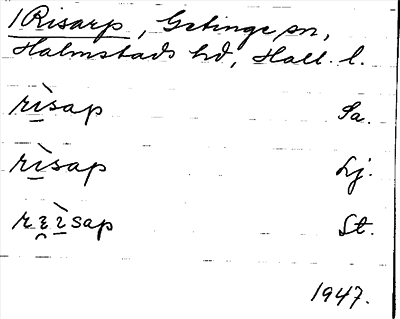 1 Risarp, Getinge sn,
Halmstads hd, Hall. l.
rìsap Sa.
rìsap Lj.
rɛ̯ìsap St.
1947.